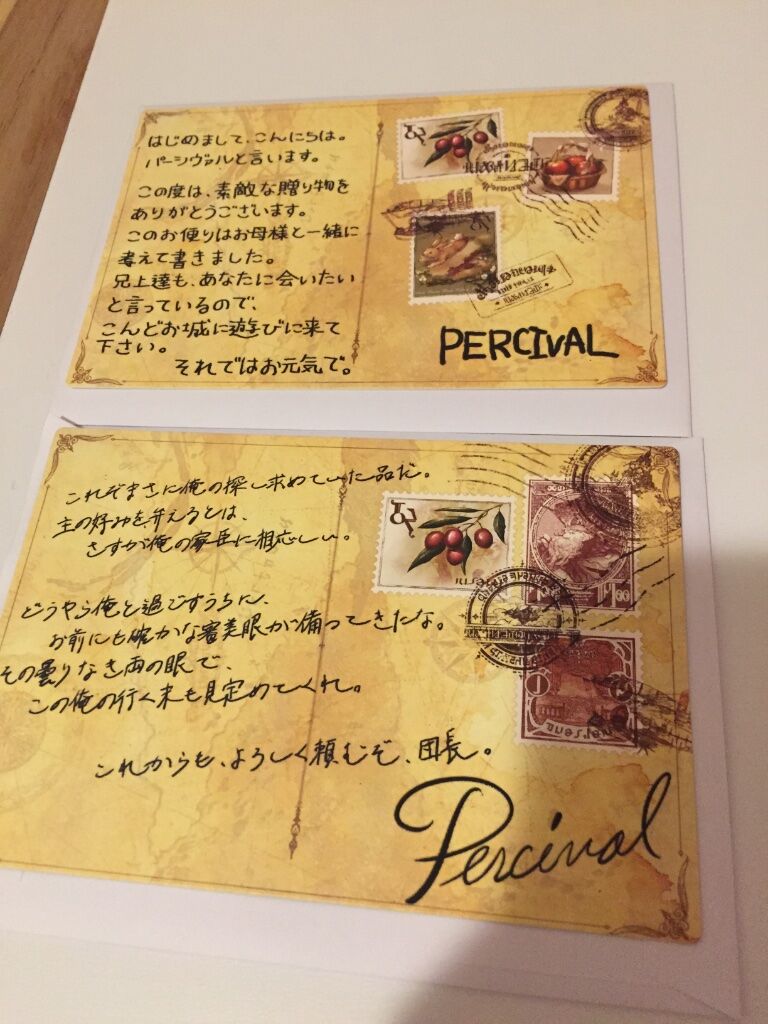 はじめまして、こんにちは。
パーシヴァルと言います。
この度は、素敵な贈り物を
ありがとうございます。
このお便りはお母様と一緒に
考えて書きました。
兄上達も、あなたに会いたい
と言っているので、
こんどお城に遊びに来て
下さい。
それではお元気で。
PERCIVAL
これぞまさに俺の探し求めていた品だ。
主の好みを弁えるとは、
さすが俺の家臣に相応しい。
どうやら俺と過ごすうちに、
お前にも確かな審美眼が備ってきたな。
その曇りなき両の眼で、
この俺の行く末も見定めてくれ。
これからも、よろしく頼むぞ、団長。
Percival